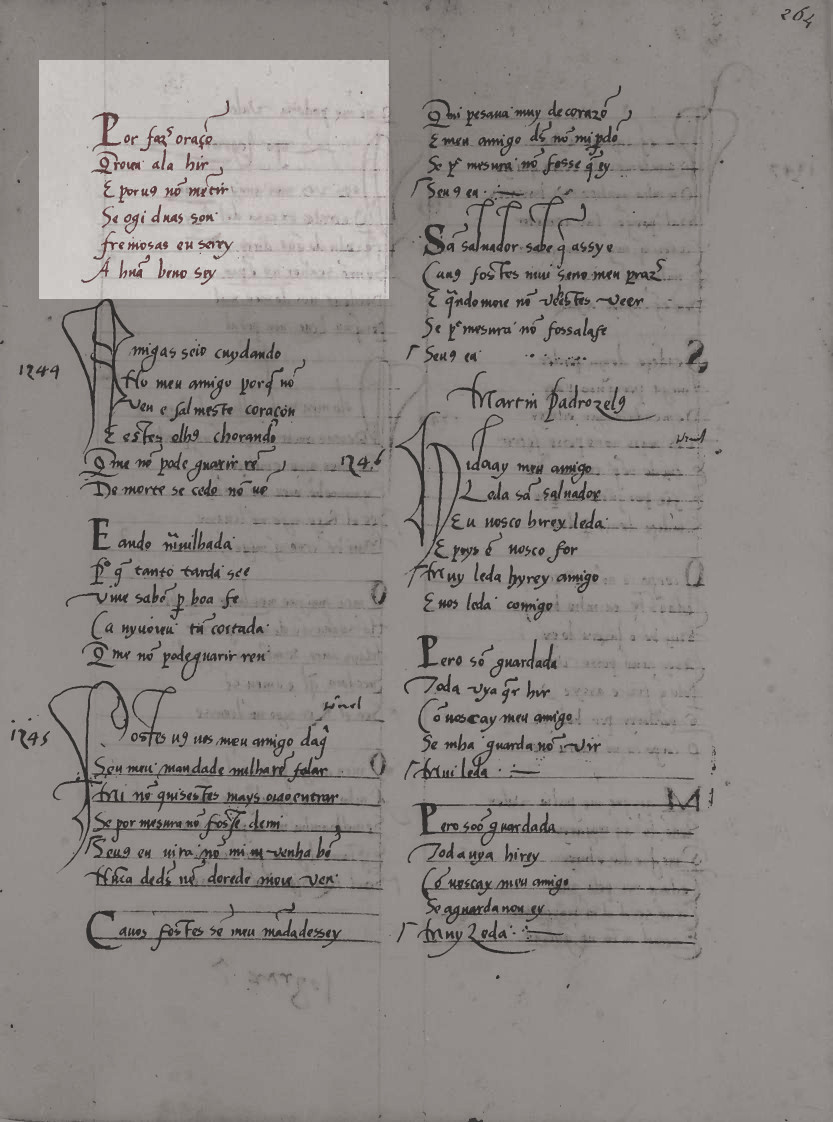 264
Por faz͂ oraço͂
Q͂rouu ala hir
E poru9 no͂ me͂tir
Se ogi duas son
fremosas eu serey
A hna͂ beno sey
1244
Amigas seio cuydando
Ho meu amigo porq͂ no͂
Ven e sal meste coraçon
E estes olh9 chorando
Q͂ me no͂ pode guarir re͂
De morte se cedo no͂ ue͂
E ando
p̃o q͂ tanto tarda see
Viue sabe͂ p̱ boa fe
Q͂ me no͂ pode guarir ren
1245
Fostes u9 uos meu amigo daq͂
Sen meu mandade nulhare͂ falar
Mui no͂ quisestes mays entrar
Se por mesura no͂ fosse demi
Seu9 eu uira no͂ mi venha be͂
Nu͂ca ded͂s ne͂ dorede moir ven
Cauos fostes se͂ meu ma͂dadessey
Q͂ mi pesaua muy de corazo͂
E meu amigo d͂s no͂ mi p̱do͂
Se p͂ mesura no͂ fosse q͂ ey
Seu9 eu
Sa͂ saluador sabe q͂ assy e
Cau9 fostes mui seno meu praz͂
E q͂ndo moir no͂ veestes veer
Se p͂ mesura no͂ fossalafe
Seu9 eu
Martin padrozel9
1246
Hidoay meu amigo
Leda sa͂ saluador
Eu uosco hirey leda
E poys e͂ uosco for
Muy leda hyrey amigo
E uos leda comigo
Pero so͂ guardada
Toda vya q͂r hir
Co͂ uoscay meu amigo
Se mha guarda no͂ vir
Mui leda
Pero soo͂ guardada
Toda uya hirey
Co͂ uoscay meu amigo
Se aguarda non ey
Muy Leda